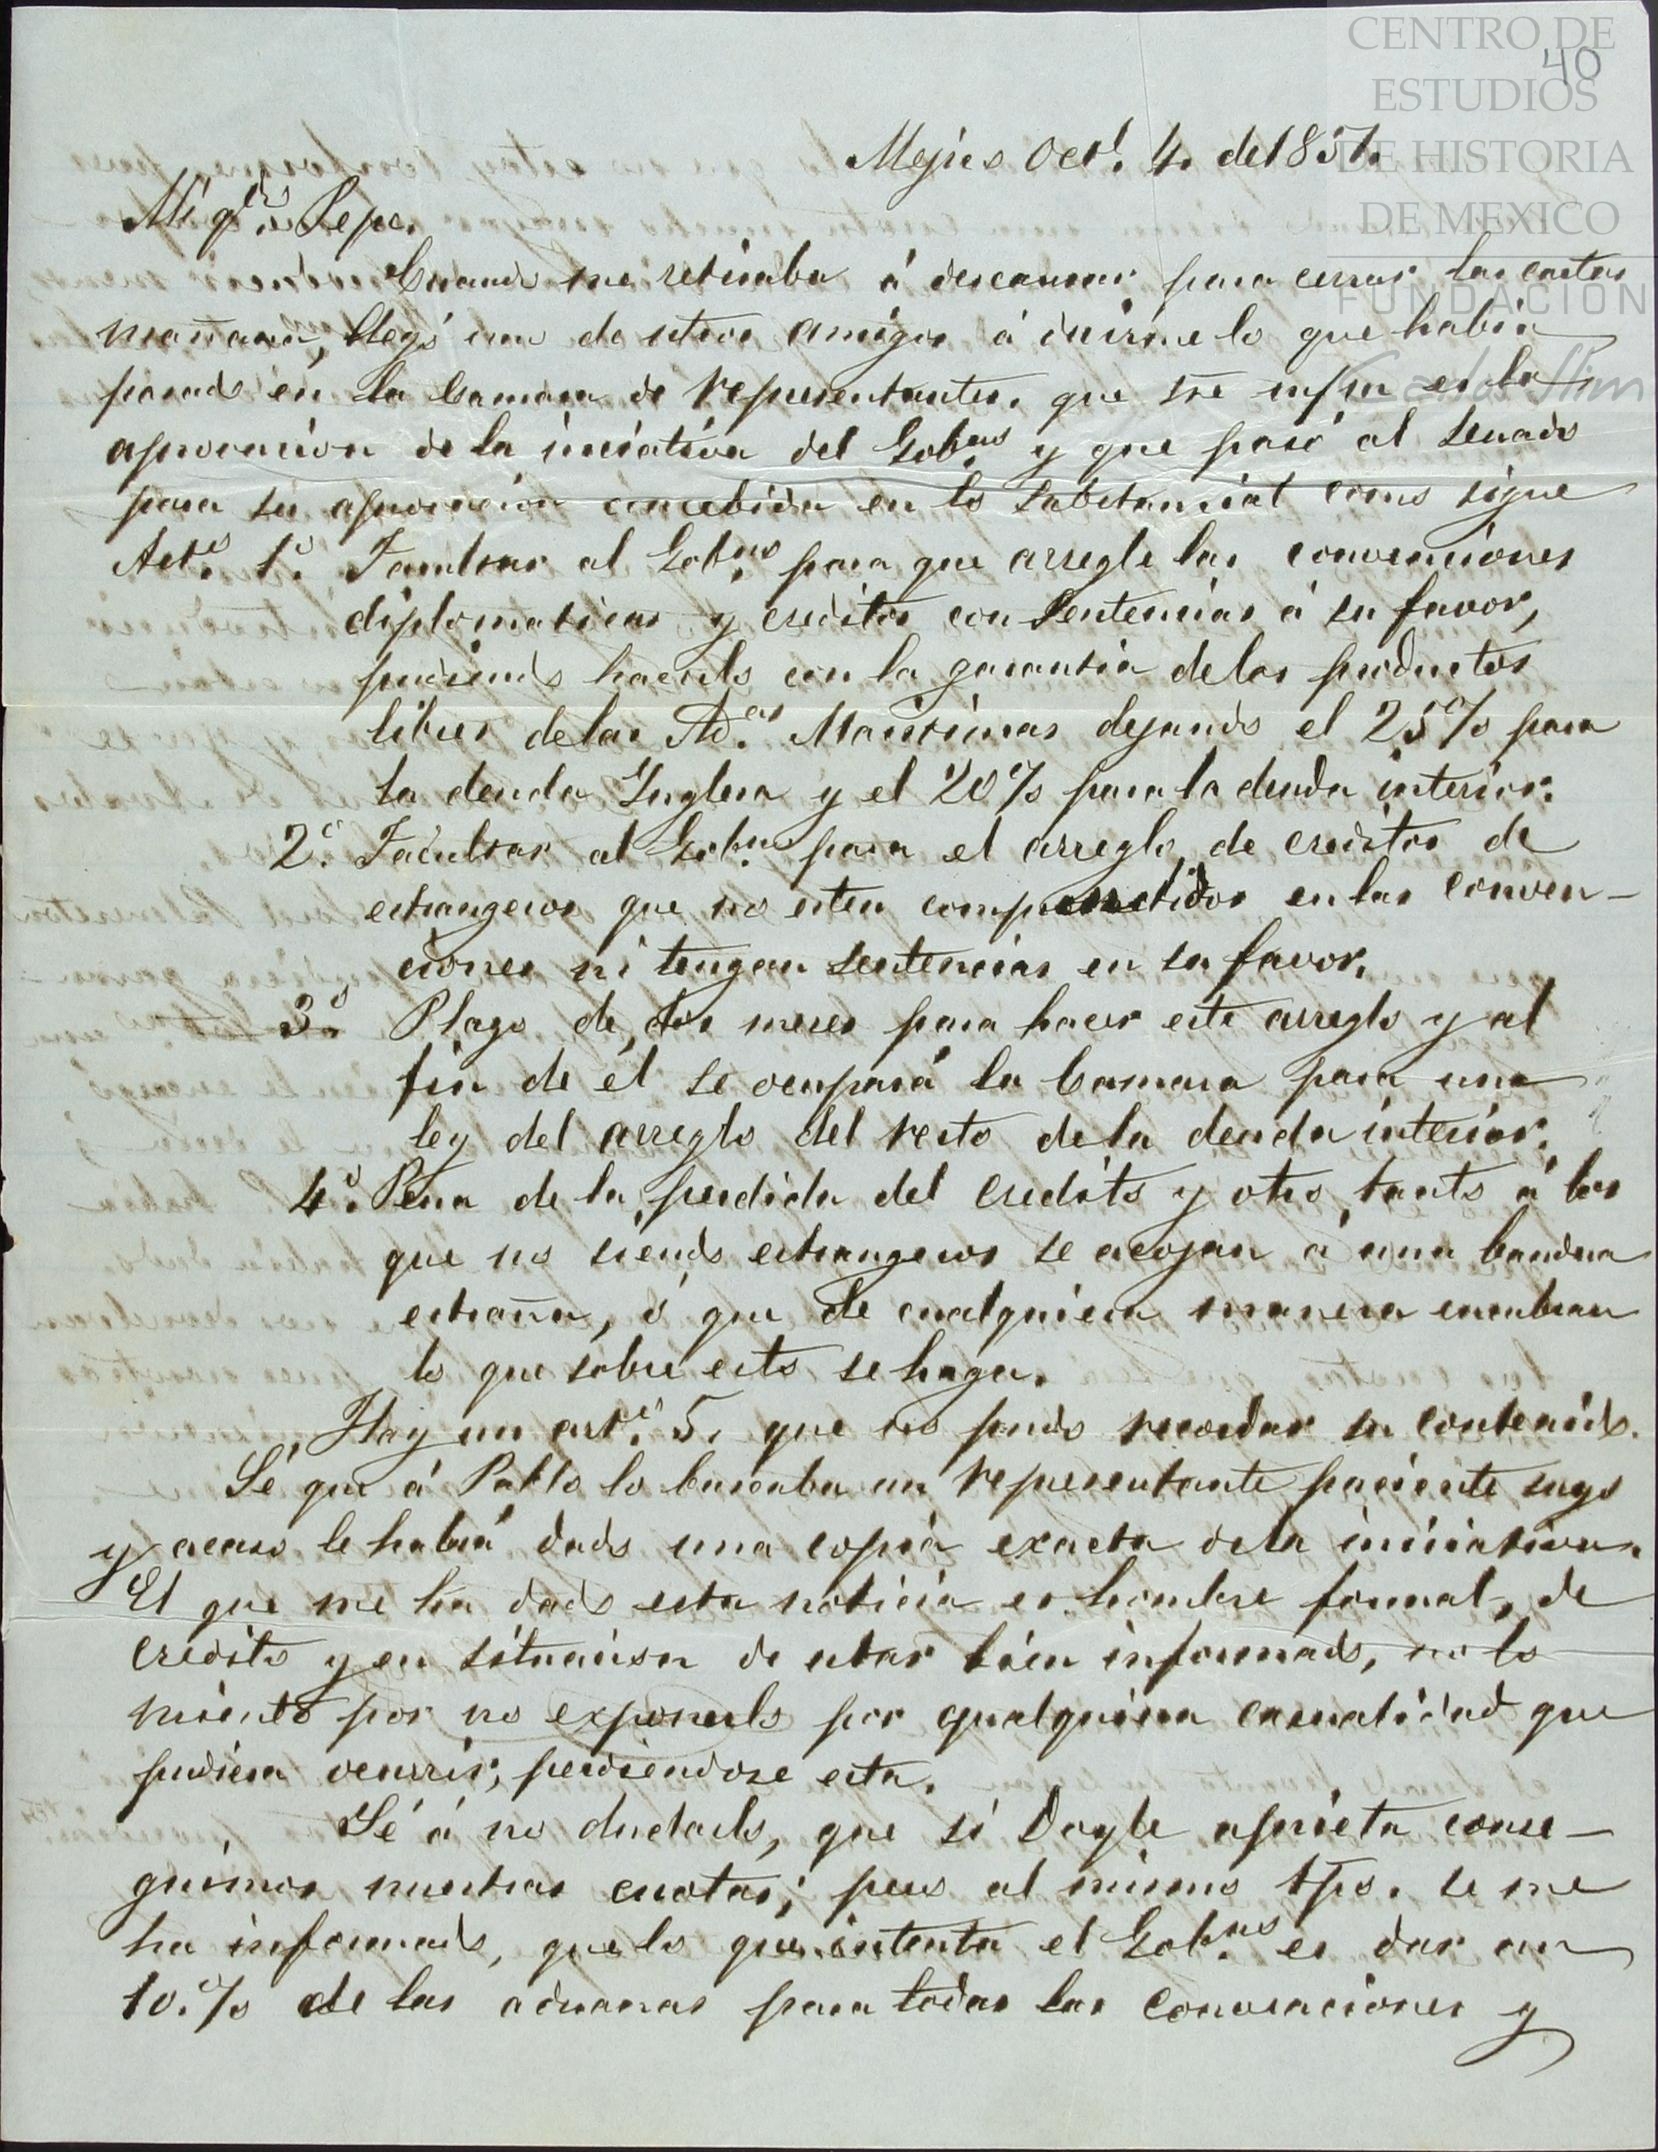 CENTRO DE
ESTUDIOS
DE HISTORIA
DE MEXICO
FUNDACION
Carlos Slim
40
Mejico Oct.e 4. de 1851.
Mi q.do Pepe.
Cuando me retiraba á descansar para cerrar las cartas
mañana, llegó uno de utros amigos á decirme lo que habia
pasado en la Camara de representantes. que en es la
aprovacion de la iniciativa del Gob.no y que pasó al Senado
para su aprovacion concebida en lo substancial como sigue
Art.o 1.o Facultar al Gob.no para que arregle las convenciones
diplomaticas y creditos con sentencias á su favor,
pudiendo hacerlo con la garantia de los productos
libres de las Ad.as Maritimas dejando el 25% para
la deuda Inglesa y el 20% para la deuda interior.
2.o Facultar al Gob.no para el arreglo de creditos de
estrangeros que no esten comprendidos en las conven-
ciones ni tengan sentencias en su favor.
3.o Plazo de dos meses para hacer este arreglo y al
fin de él se ocupará la Camara para una
ley del arreglo del resto de la deuda interior.
4.o Pena de la perdida del credito y otro tanto á los
que no siendo estrangeros se acojan á una bandera
estraña, ó que de cualquiera manera encubran
lo que sobre esto se haga.
Hay un art.o 5. que no pudo recordar su contenido.
Sé que á Pablo lo buscaba un representante pariente suyo
y acaso le habrá dado una copia exacta de la iniciativa.
El que me ha dado esta noticia es hombre formal, de
credito y en situacion de estar bien informado, no lo
miento por no exponerlo por qualquiera casualidad que
pudiera ocurrir, perdiendose esta.
Sé á no dudarlo, que si Doyle aprieta conse-
guimos nuestras cuotas; pero al mismo tpo. se me
ha informado, que lo que intenta el Gob.no es dar un
10.% de las aduanas para todas las convenciones y